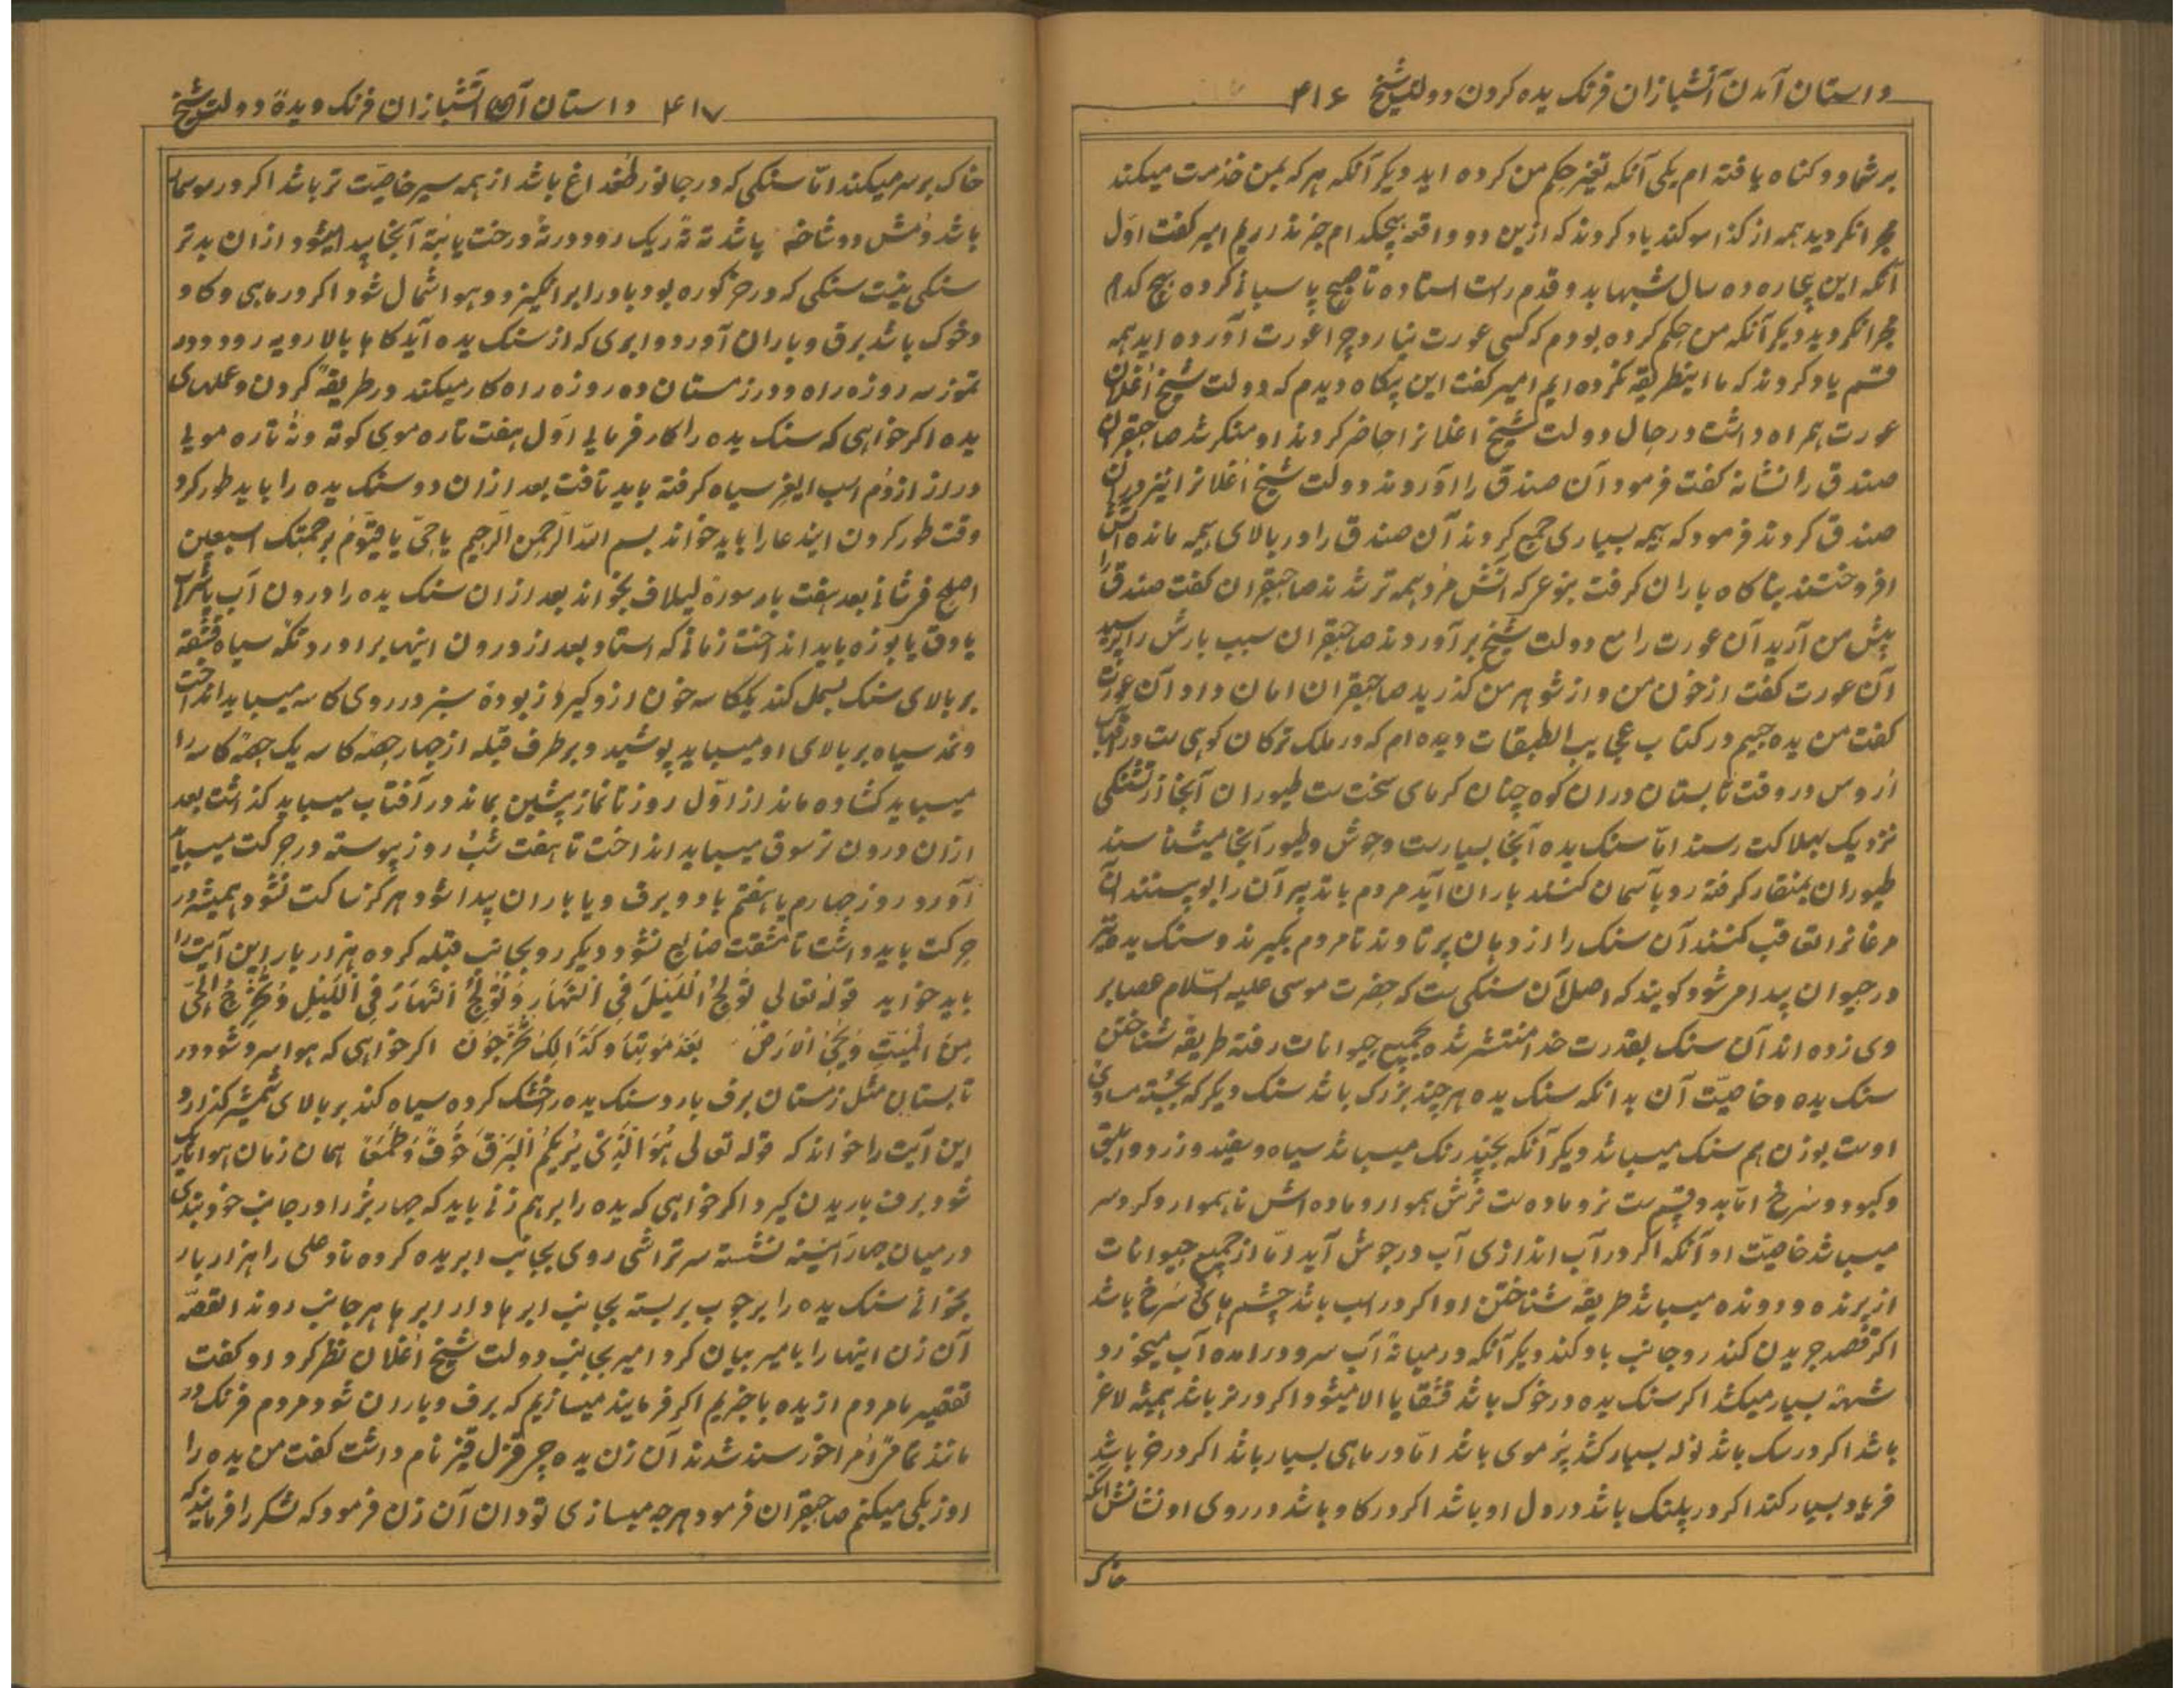 داستان آمدن آتشبازان فرنک یده کردن دولت شیخ ۴۱۶
بر شما دو کناه یافته ام یکی آنکه تغیر حکم من کرده اید دیکر آنکه هر که بمن خذمت میکند
مجرا نکردید همه از کذا سوکند یاد کردند که ازین دو واقعه هیچکدام خبر نذاریم امیر کفت اول
آنکه این بیچاره ده سال شبها بدو قدم راست استاده تا صبح پاسبانی کرده هیچ کدام
مجرا نکردید دیکر آنکه من حکم کرده بودم که کسی عورت نیارد چرا عورت آورده اید همه
قسم یاد کردند که ما اینطریقه نکرده ایم امیر کفت این پکاه دیدم که دولت شیخ اغلان
عورت همراه داشت در حال دولت شیخ اغلانرا حاضر کردند او منکر شد صاحبقران
صندق را نشانه کفت فرمود آن صندق را آوردند دولت شیخ اغلانرا نیز در آن
صندق کردند فرمود که هیمه بسیاری جمع کردند آن صندق را در بالای هیمه مانده آتش
افروختند بناکاه باران کرفت بنوعی که آتش مرد همه تر شدند صاحبقران کفت صندق را
پیش من آرید آن عورت را مع دولت شیخ بر آوردند صاحبقران سبب بارش را پرسید
آن عورت کفت از خون من و از شوهر من کذرید صاحبقران امان داد آن عورت
کفت من یده چیم در کتاب عجایب الطبقات دیده ام که در ملک ترکان کوهی ست در
اروس در وقت تابستان دران کوه چنان کرمای سخت ست طیوران آنجا از تشنکی
نزدیک بهلاکت رسند اما سنک یده آنجا بسیارست وحوش و طیور آنجا میشناسند
طیوران بمنقار کرفته رو بآسمان کنند باران آید مردم باتدبیر آن را پیوستند آن
مرغانرا تعاقب کنند آن سنک را از دهان پرتاوند تا مردم بکیرند و سنک یده
در حیوان پیدا میشود کویند که اصل آن سنکی ست که حضرت موسی علیه السلام عصا بر
وی زده اند آن سنک بقدرت خدا منتشر شده بجمیع حیوانات رفته طریقه شناختن
سنک یده و خاصیت آن بدانکه سنک یده هر چند بزرک باشد سنک دیکر که بجثه مساوی
اوست بوزن هم سنک میباشد دیکر آنکه بچند رنک میباشد سیاه و سفید و زرد و ابلق
و کبود و سرخ اما بدو قسم ست نر و ماده ست نرش هموار و ماده اش ناهموار و کرد سر
میباشد خاصیت او آنکه اکر در آب اندازی آب در جوش آید اما از جمیع حیوانات
از پرنده و درونده میباشد طریقه شناختن او اکر در اسب باشد چشم های سرخ باشد
اکر قصد چریدن کند رو جانب باد کند دیکر آنکه در میانه آب سرد در امده آب میخورد
شیهه بسیار میکشد اکر سنک یده در خوک باشد قشقا یا الا میشود اکر در نر باشد همیشه لاغر
باشد اکر در سک باشد نوله بسیار کشد پر موی باشد اما در ماهی بسیار باشد اکر در خر باشد
فریاد بسیار کند اکر در پلنک باشد در دل او باشد اکر در کاو باشد در روی او نشانش آنکه
خاک
۴۱۷ داستان آمدن آتشبازان فرنک و یده دولت شیخ
خاک بر سر میکند اما سنکی که در جانور طغداغ باشد از همه سیر خاصیت تر باشد اکر در موسمار
باشد دمش دو شاخه باشد ته ته ریک رود در ته درخت یا بته آنجا پیدا میشود ازان بدتر
سنکی نیست سنکی که در خر کوره بود باد را بر انکیزد و هوا شمال شود اکر در ماهی و کاو
و خوک باشد برق و باران آورد و ابری که از سنک یده آید کاها بالا رویه رود و در
تموز سه روزه راه و در زمستان ده روزه راه کار میکند در طریقه کردن و عملهای
یده اکر خواهی که سنک یده را کار فرمایی اول هفت تاره موی کوته و نه تاره موی
دراز از دم اسب ایغر سیاه کرفته باید تافت بعد ازان دو سنک یده را باید طور کرد
وقت طور کردن ایندعا را باید خواند بسم الله الرحمن الرحیم یا حی یا قیوم برحمتک استعین
اصلح فرشانی بعد هفت بار سوره لیلاف بخواند بعد ازان سنک یده را درون آب یا شراب
یا دوق یا بوزه باید انداخت زمانی که استاد بعد از درون اینها بر اورد و تکه سیاه قشقه
بر بالای سنک بسمل کند یککاسه خون ازو کیرد زبوده سبز در روی کاسه میباید انداخت
و نمد سیاه بر بالای او میباید پوشید و بر طرف قبله از چهار حصه کاسه یک حصه کاسه را
میباید کشاده ماند از اول روز تا نماز پیشین بماند در آفتاب میباید کذاشت بعد
ازان درون ترسوق میباید انداخت تا هفت شب روز پیوسته در حرکت میباید
آورد روز چهارم یا هفتم باد و برف و یا باران پیدا شود هرکز ساکت نشود همیشه در
حرکت باید داشت تا مشقت ضایع نشود دیکر رو بجانب قبله کرده هزار بار این آیت را
باید خواند قوله تعالی تولج اللیل فی النهار و تولج النهار فی اللیل و تخرج الحی
من المیت و یحی الارض بعد موتها و کذالک تخرجون اکر خواهی که هوا سرد شود در
تابستان مثل زمستان برف بارد سنک یده را خشک کرده سیاه کند بر بالای شمشیر کذارد
این آیت را خواند که قوله تعالی هو الذی یریکم البرق خوفا و طمعا همان زمان هوا تاریک
شود برف باریدن کیرد اکر خواهی که یده را برهم زنی باید که چهار بز را در جانب خود بندی
در میان چهار آیینه نشسته سر تراشی روی بجانب ابر یده کرده ناد علی را هزار بار
بخوانی سنک یده را بر چوب بر بسته بجانب ابرها دار ابرها هر جانب روند القصه
آن زن اینها را بامیر بیان کرد امیر بجانب دولت شیخ اغلان نظر کرد او کفت
تقصیر ما مردم از یده باخبریم اکر فرمایند میسازیم که برف و باران شود مردم فرنک در
مانند تمام امرا خورسند شدند آن زن یده چی قزل قیز نام داشت کفت من یده را
اوزبکی میکنم صاحبقران فرمود هرچه میسازی تودان آن زن فرمود که لشکر را فرمایند که